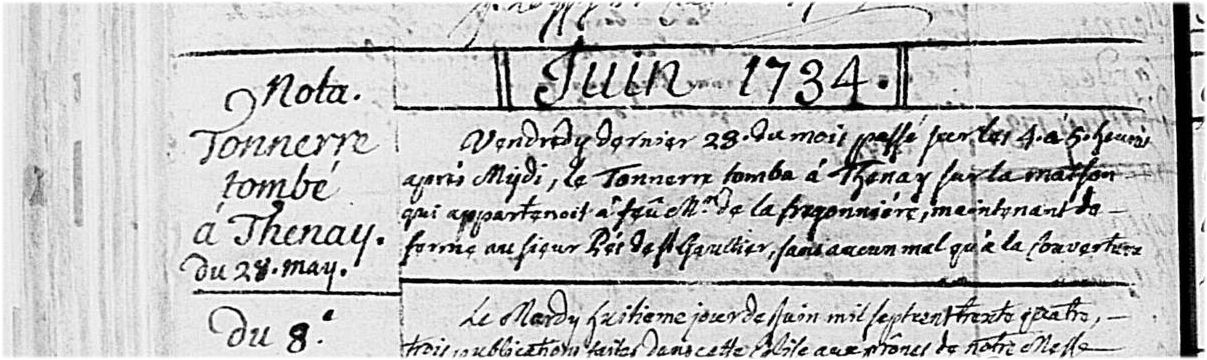 Juin 1734.
Nota.
Tonnerre
tombé
à Thenay.
du 28. may.
Vendredy dernier 28. du mois passé sur les 4. à 5. heures
après Mydi, le Tonnerre tomba à Thenay sur la maison
qui appartenoit à feû Mr. de la frogonniére, maintenant de
ferme au sieur de St Gaultier, sans aucun mal qu'à la couverture
du 8.e
Le Mardy huitième jour de Juin mil sept cent trente quatre,
trois publications faites dans cette Eglise aux prônes de notre Messe